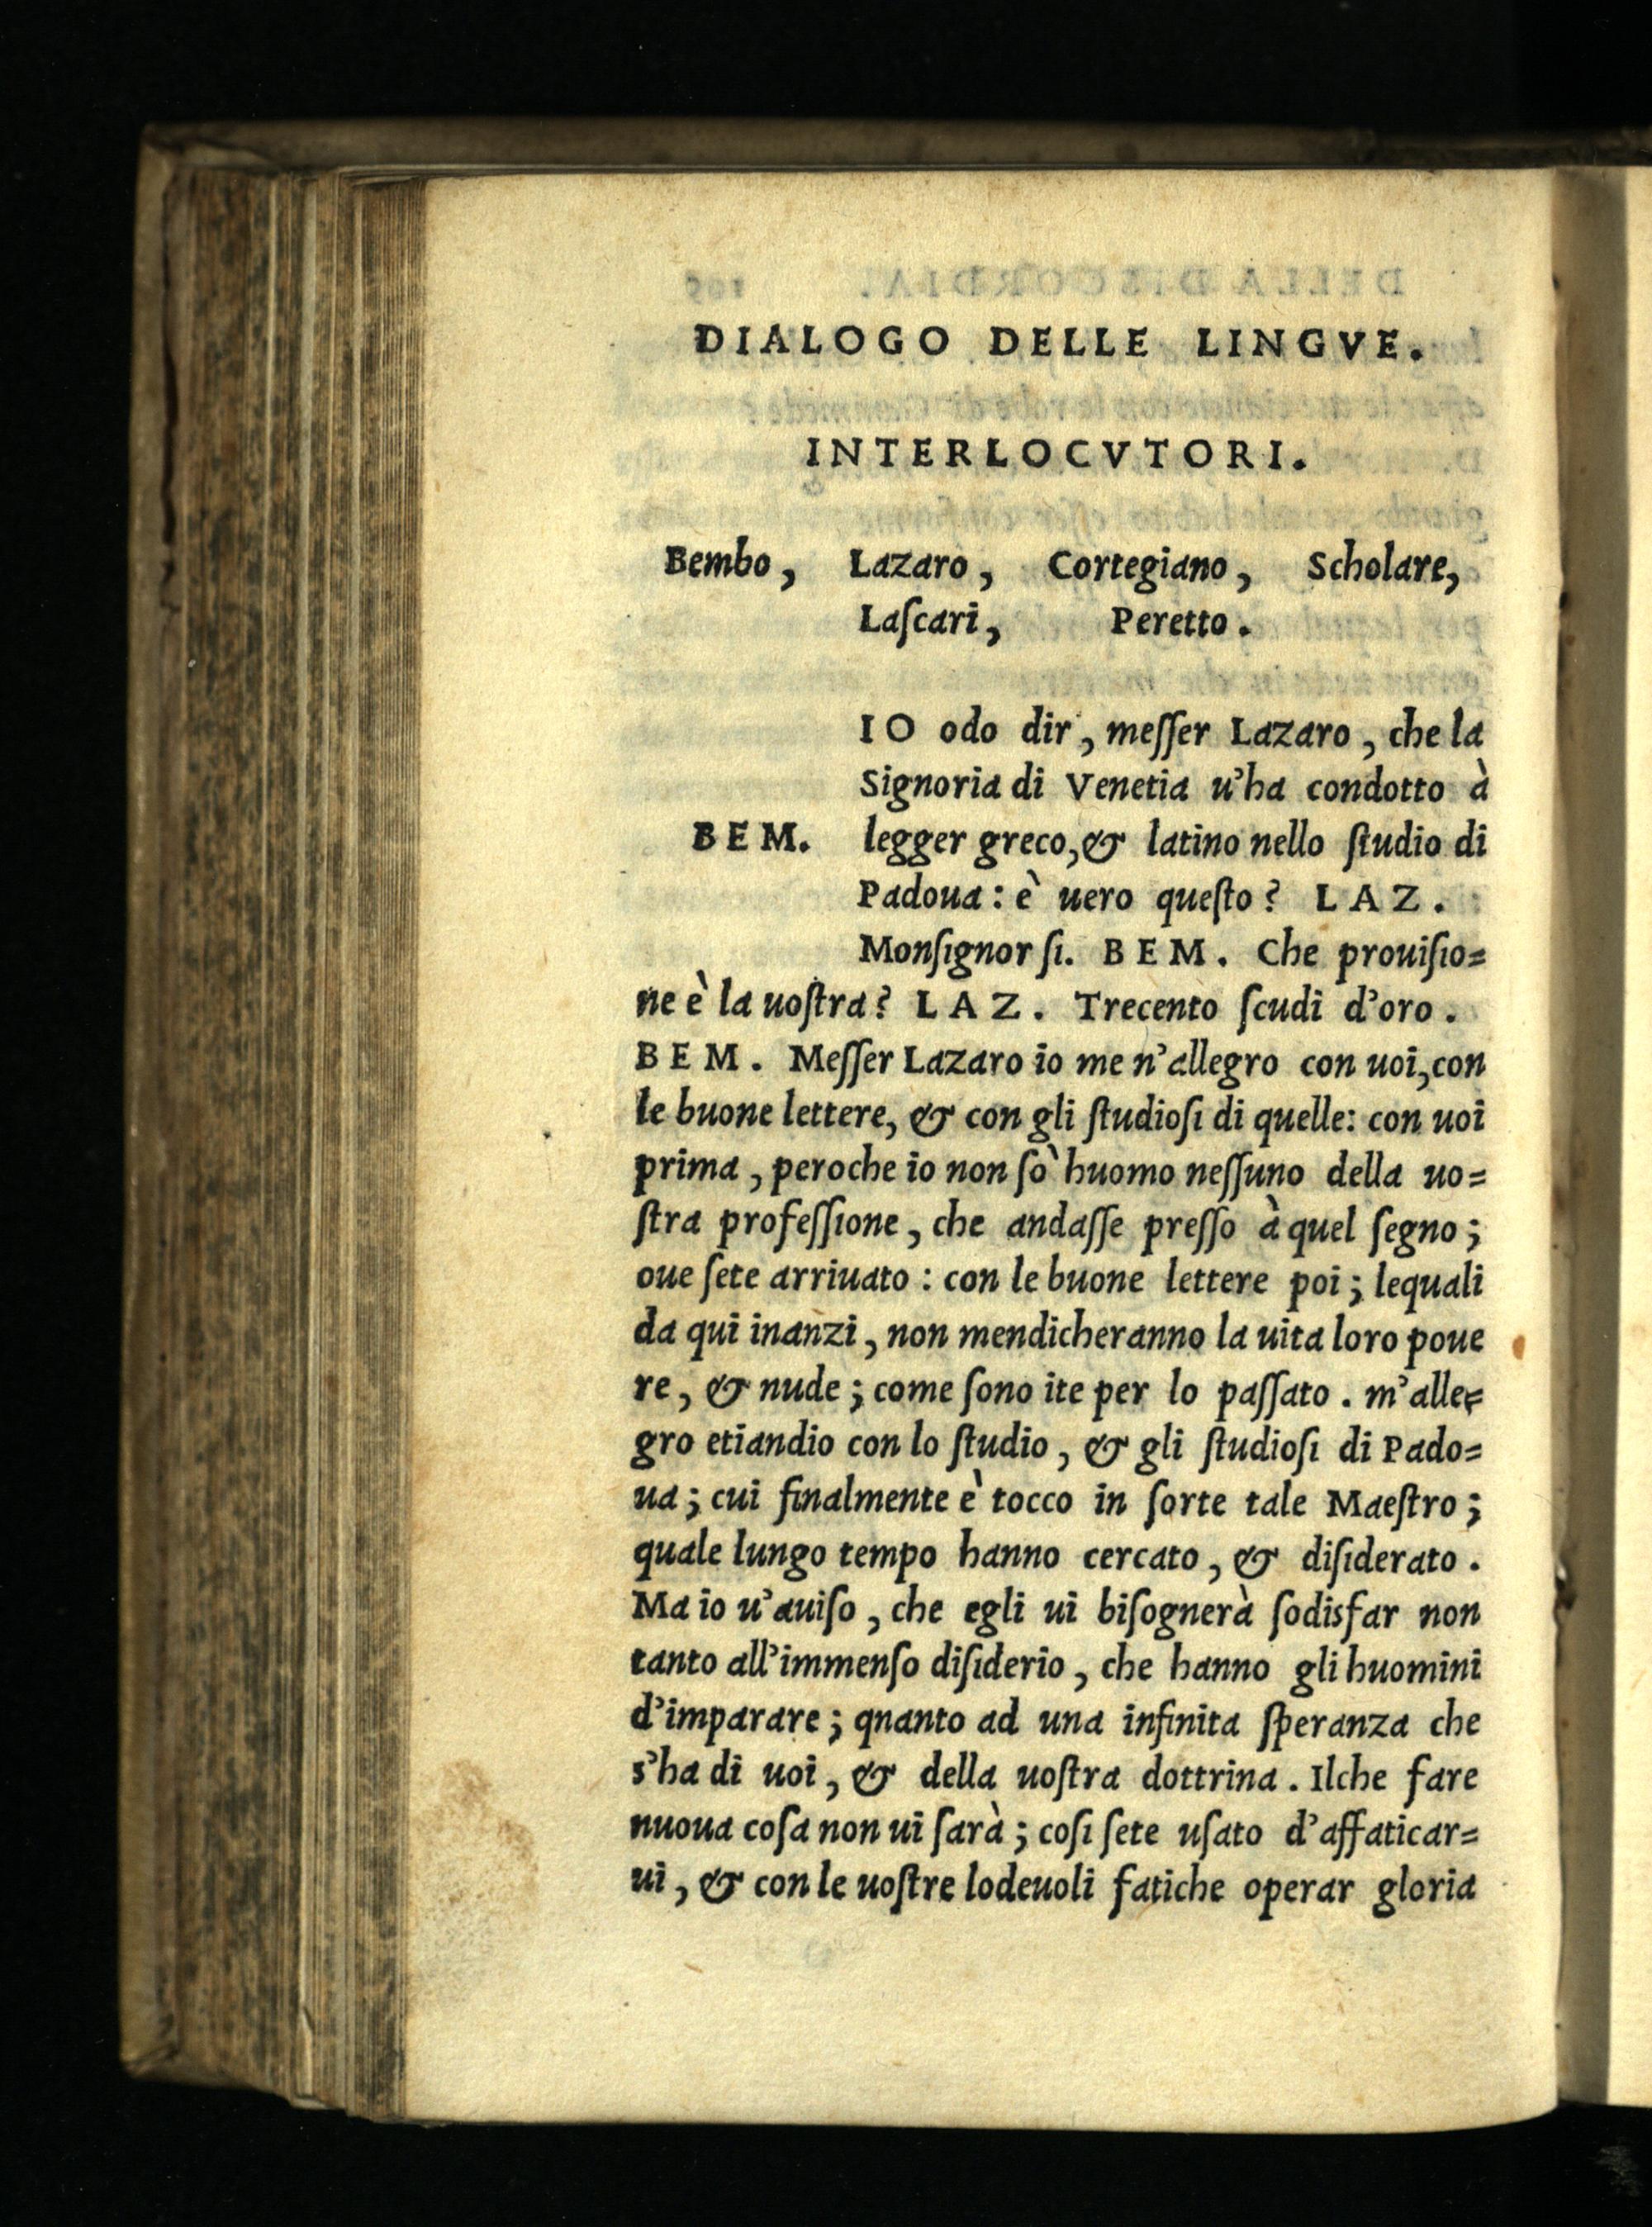 DIALOGO DELLE LINGVE.
INTERLOCVTORI.
Bembo, Lazaro, Cortegiano, Scholare,
Laſcari, Peretto.
IO odo dir, meſſer Lazaro, che la
Signoria di Venetia u'ha condotto à
BEM. legger greco, & latino nello ſtudio di
Padoua: è uero queſto? LAZ.
Monſignor ſi. BEM. Che prouiſio=
ne è la uoſtra? LAZ. Trecento ſcudi d'oro.
BEM. Meſſer Lazaro io me n'allegro con uoi, con
le buone lettere, & con gli ſtudioſi di quelle: con uoi
prima, peroche io non ſò huomo neſſuno della uo=
ſtra profeſſione, che andaſſe preſſo à quel ſegno;
oue ſete arriuato: con le buone lettere poi; lequali
da qui inanzi, non mendicheranno la uita loro poue
re, & nude; come ſono ite per lo paſſato. m'alle=
gro etiandio con lo ſtudio, & gli ſtudioſi di Pado=
ua; cui finalmente è tocco in ſorte tale Maeſtro;
quale lungo tempo hanno cercato, & diſiderato.
Ma io u'auiſo, che egli ui biſognerà ſodisfar non
tanto all'immenſo diſiderio, che hanno gli huomini
d'imparare; qnanto ad una infinita ſperanza che
s'ha di uoi, & della uoſtra dottrina. Ilche fare
nuoua coſa non ui ſarà; coſi ſete uſato d'affaticar=
ui, & con le uoſtre lodeuoli fatiche operar gloria